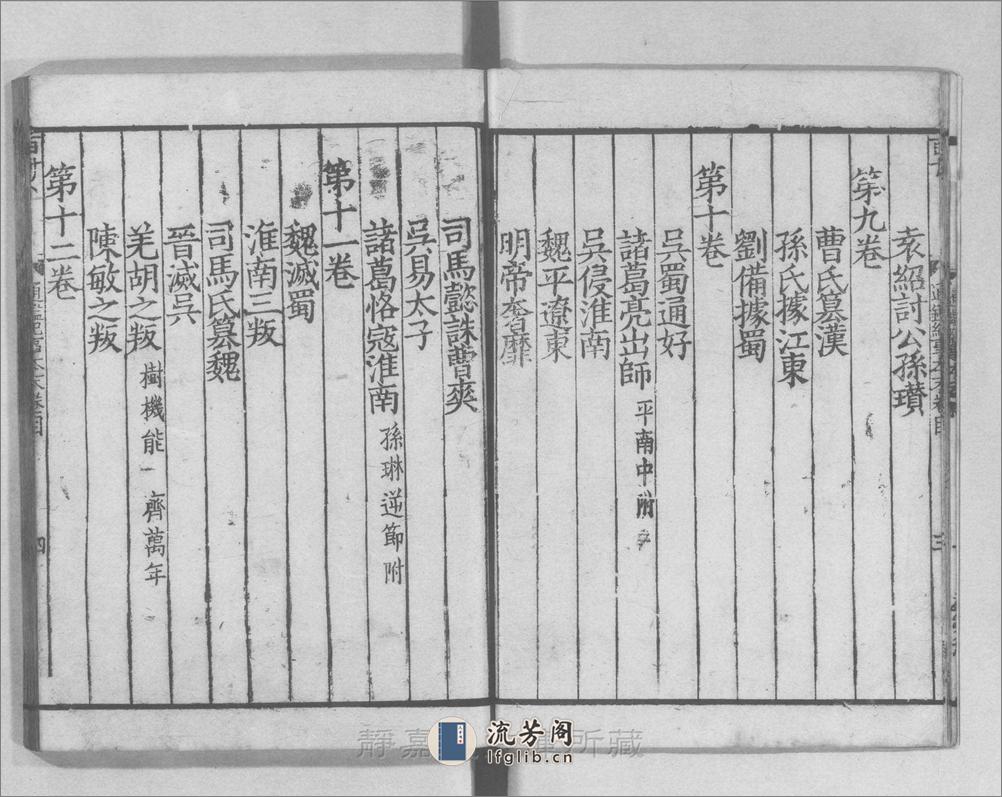 袁紹討公孫瓚
第九卷
曹氏篡漢
孫氏據江東
劉備據蜀
第十卷
吳蜀通好
諸葛亮出師 平南中附
吳侵淮南
魏平遼東
明帝奢靡
司馬懿誅曹爽
吳易太子
諸葛恪寇淮南 孫琳逆節附
第十一卷
魏滅蜀
淮南三叛
司馬氏篡魏
晉滅吳
羌胡之叛 樹機能 齊萬年
陳敏之叛
第十二卷
四
三
靜嘉
所藏
流芳阁
lfglib.cn